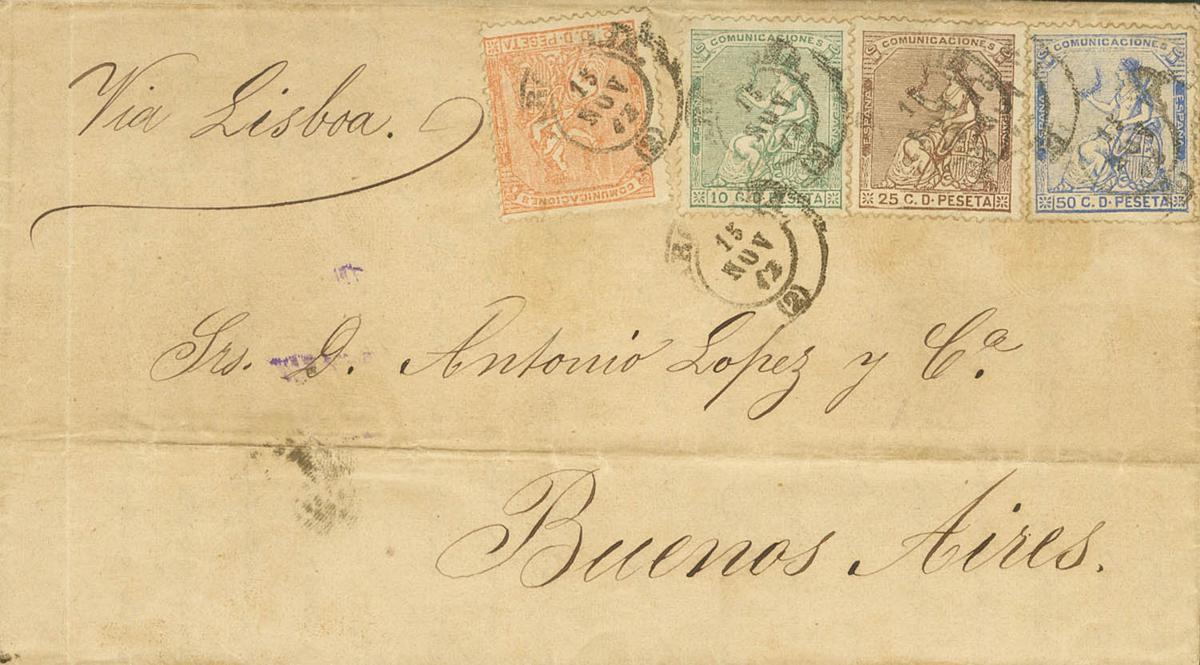 Via Lisboa.
C. D. PESETA
COMUNICACIONES
COMUNICACIONES
ESPAÑA
10 C. D. PESETA
COMUNICACIONES
ESPAÑA
25 C. D. PESETA
COMUNICACIONES
ESPAÑA
ESPAÑA
50 C. D. PESETA
15
NOV
(2)
15
NOV
15
NOV
(2)
Srs. D. Antonio Lopez y Cª.
Buenos Aires.